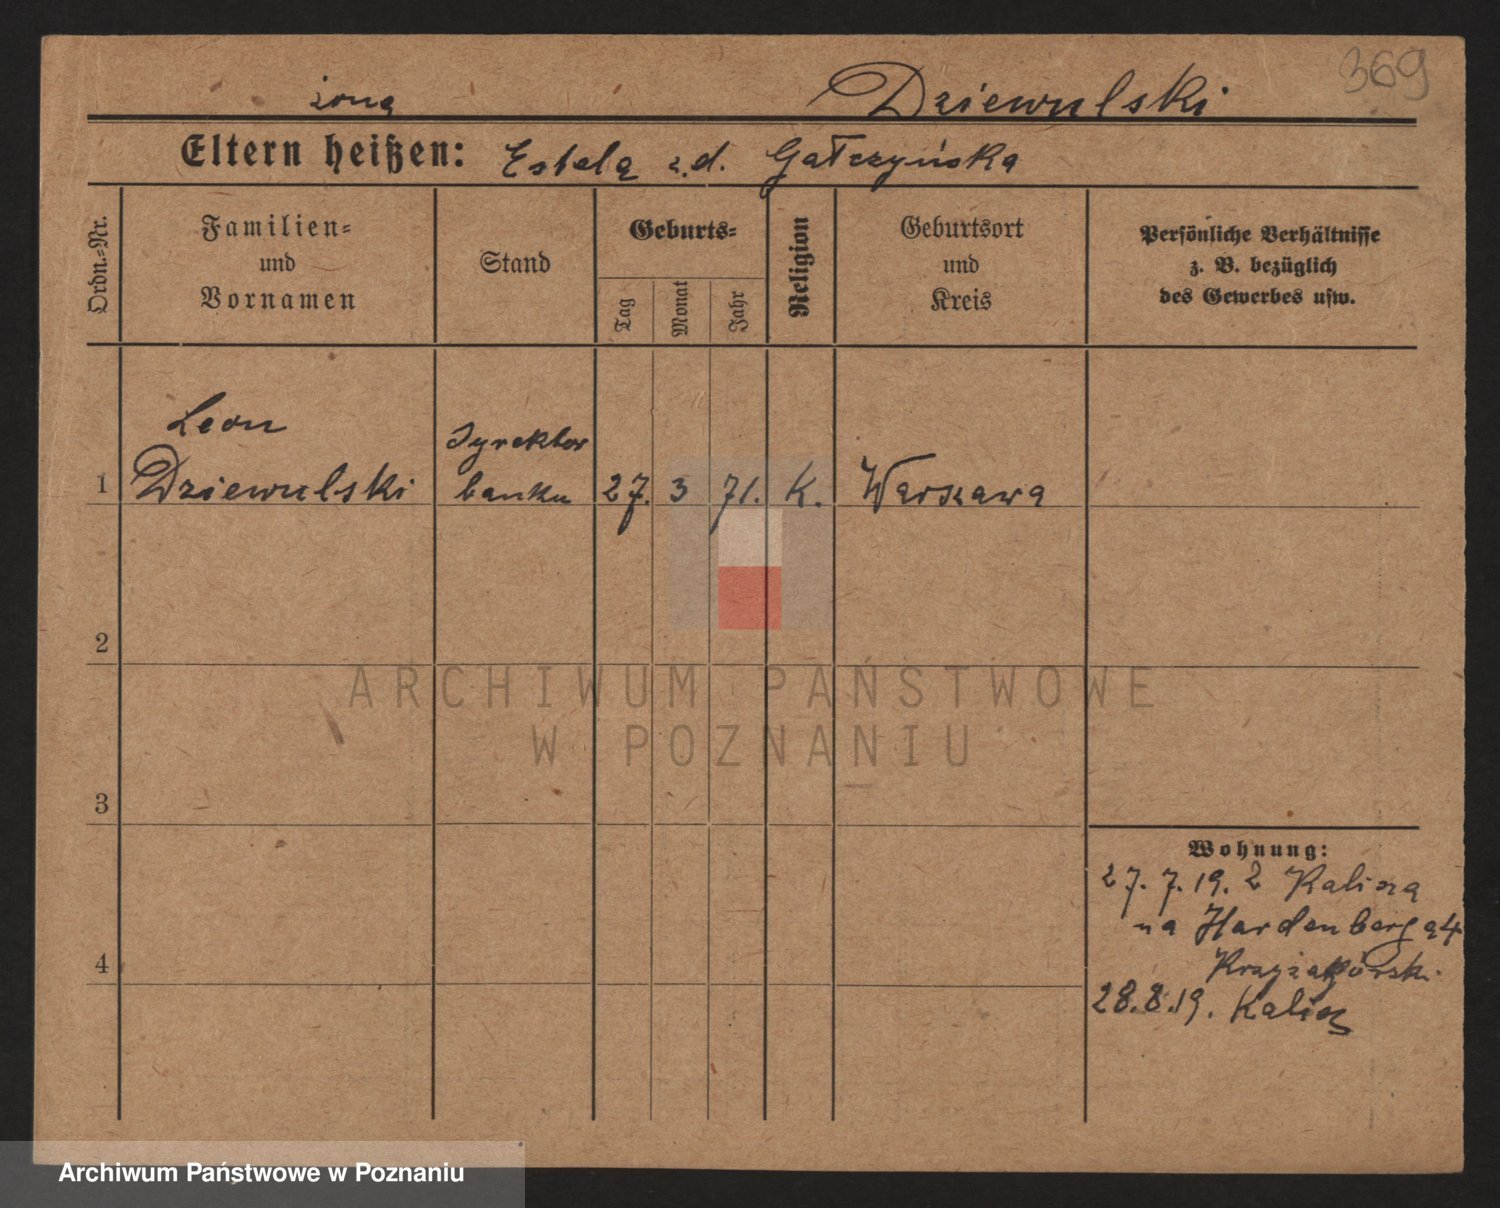 369
żona Dziewulski
Eltern heißen: Estela z.d. Gałczyńska
Ordn.-Nr.
Familien-
und
Vornamen
Stand
Geburts-
Tag
Monat
Jahr
Religion
Geburtsort
und
Kreis
Persönliche Verhältnisse
z. B. bezüglich
des Gewerbes usw.
Leon
Dyrektor
1 Dziewulski banku 27. 3 71. K. Warszawa
2
ARCHIWUM PAŃSTWOWE
W POZNANIU
3
Wohnung:
27. 7. 19. z Kalisza
na Hardenberga 4
4
28.8.19. Kalisz
Archiwum Państwowe w Poznaniu